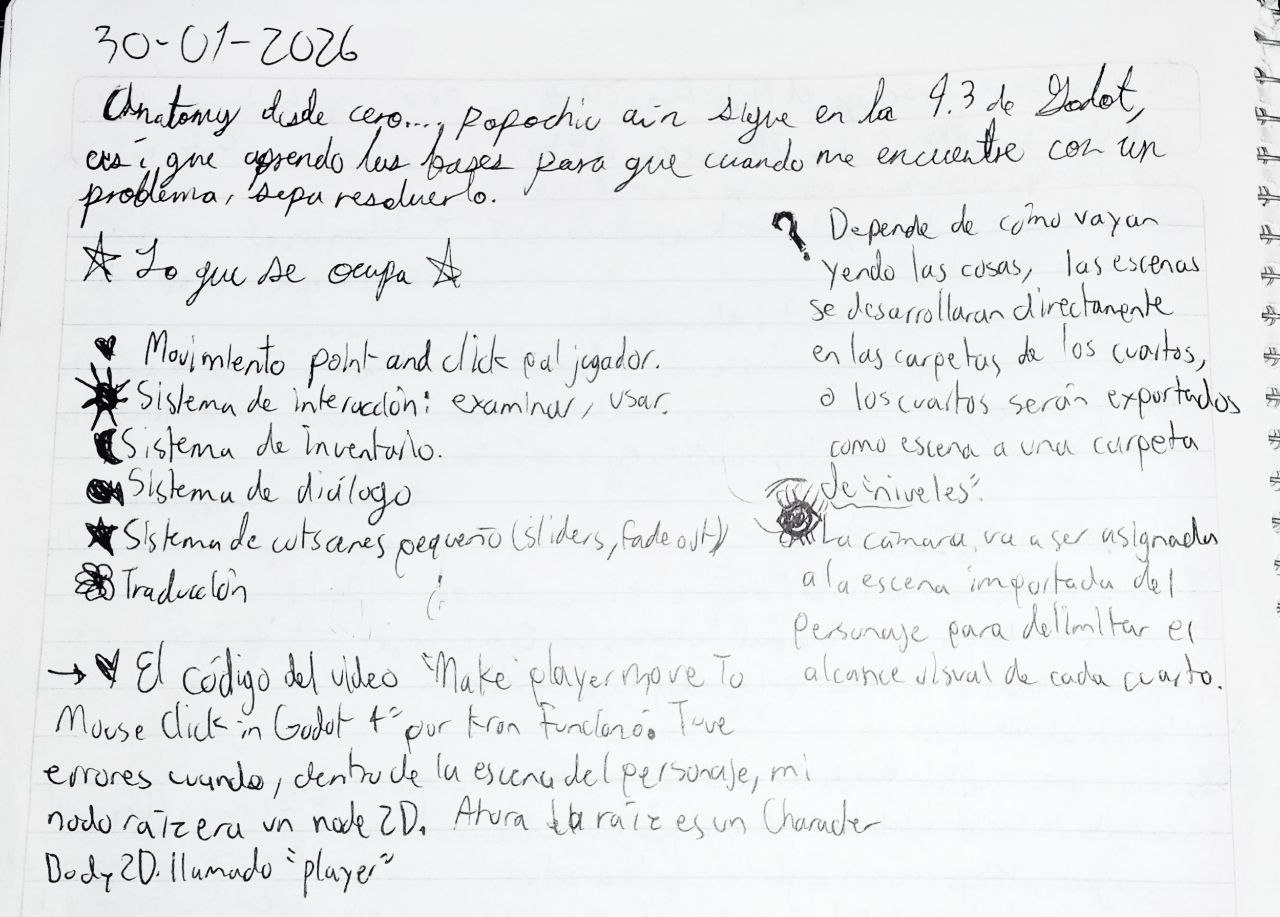 30-01-2026
Anatomy desde cero..., popochiu aún sigue en la 4.3 de Godot,
así que aprendo las bases para que cuando me encuentre con un
problema, sepa resolverlo.
☆ Lo que se ocupa ☆
♥ Movimiento point and click pal jugador.
Sistema de interacción: examinar, usar.
Sistema de Inventario.
Sistema de diálogo
★ Sistema de cutscenes pequeño (sliders, fade out)
Traducción
→ ♥ El código del video "Make player move To
Mouse Click in Godot 4" por Kron Funcionó. Tuve
errores cuando, dentro de la escena del personaje, mi
nodo raíz era un node 2D. Ahora la raíz es un Character
Body2D. llamado "player"
? Depende de cómo vayan
yendo las cosas, las escenas
se desarrollaran directamente
en las carpetas de los cuartos,
o los cuartos serán exportados
como escena a una carpeta
de "niveles".
La cámara va a ser asignada
a la escena importada del
personaje para delimitar el
alcance visual de cada cuarto.